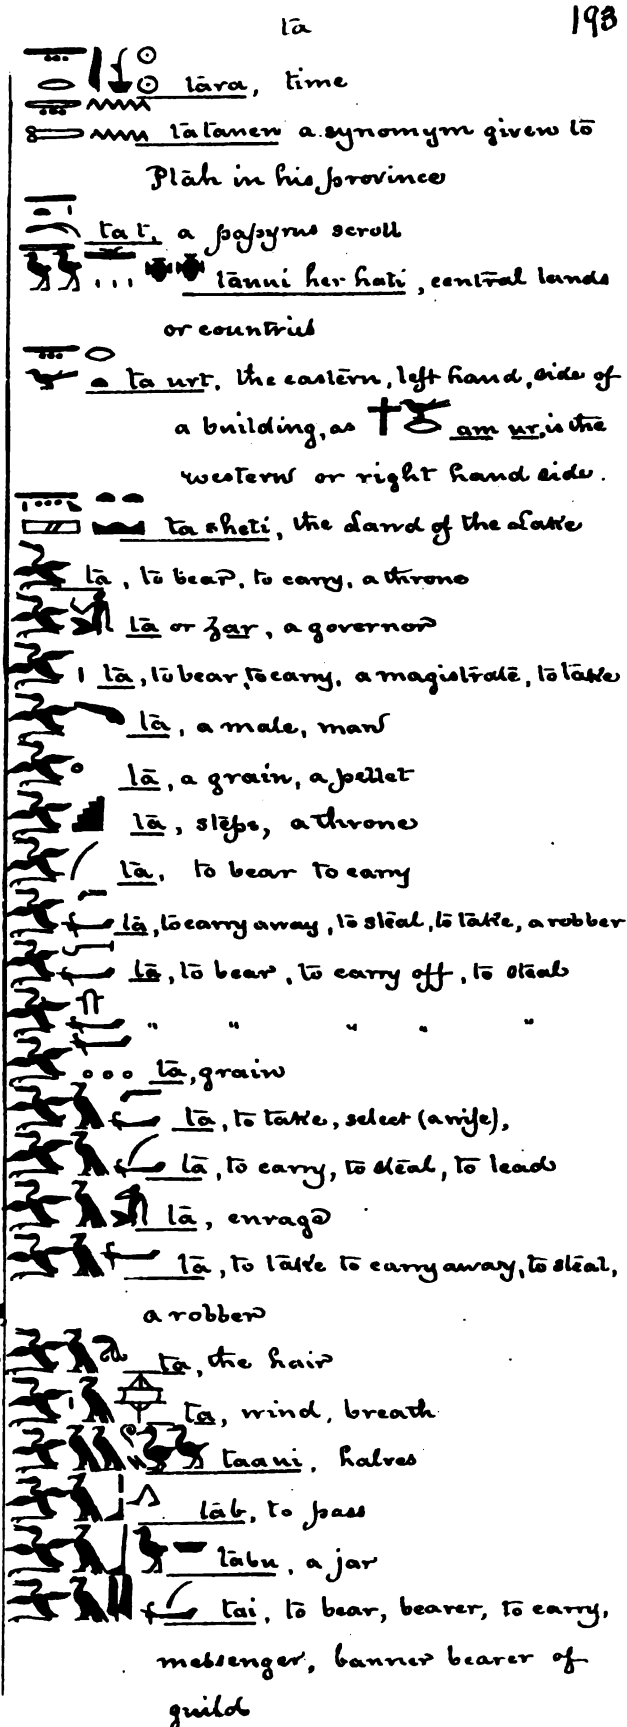 ta 193
tāra, time
tātanen a synomym given to
Ptāh in his province
tat, a papyrus scroll
tānui her hati, central lands
or countries
ta urt, the eastern, left hand, side of
a building, as am ur, is the
western or right hand side.
ta sheti, the Land of the Lake
tā, to bear, to carry, a throne
tā or zar, a governor
tā, to bear, to carry, a magistrate, to take
tā, a male, man
tā, a grain, a pellet
tā, steps, a throne
tā, to bear to carry
tā, to carry away, to steal, to take, a robber
tā, to bear, to carry off, to steal
" " " " "
tā, grain
tā, to take, select (a wife),
tā, to carry, to steal, to lead
tā, enrage
tā, to take to carry away, to steal,
a robber
ta, the hair
ta, wind, breath
taaui, halves
tāb, to pass
tābu, a jar
tai, to bear, bearer, to carry,
messenger, banner bearer of
guild